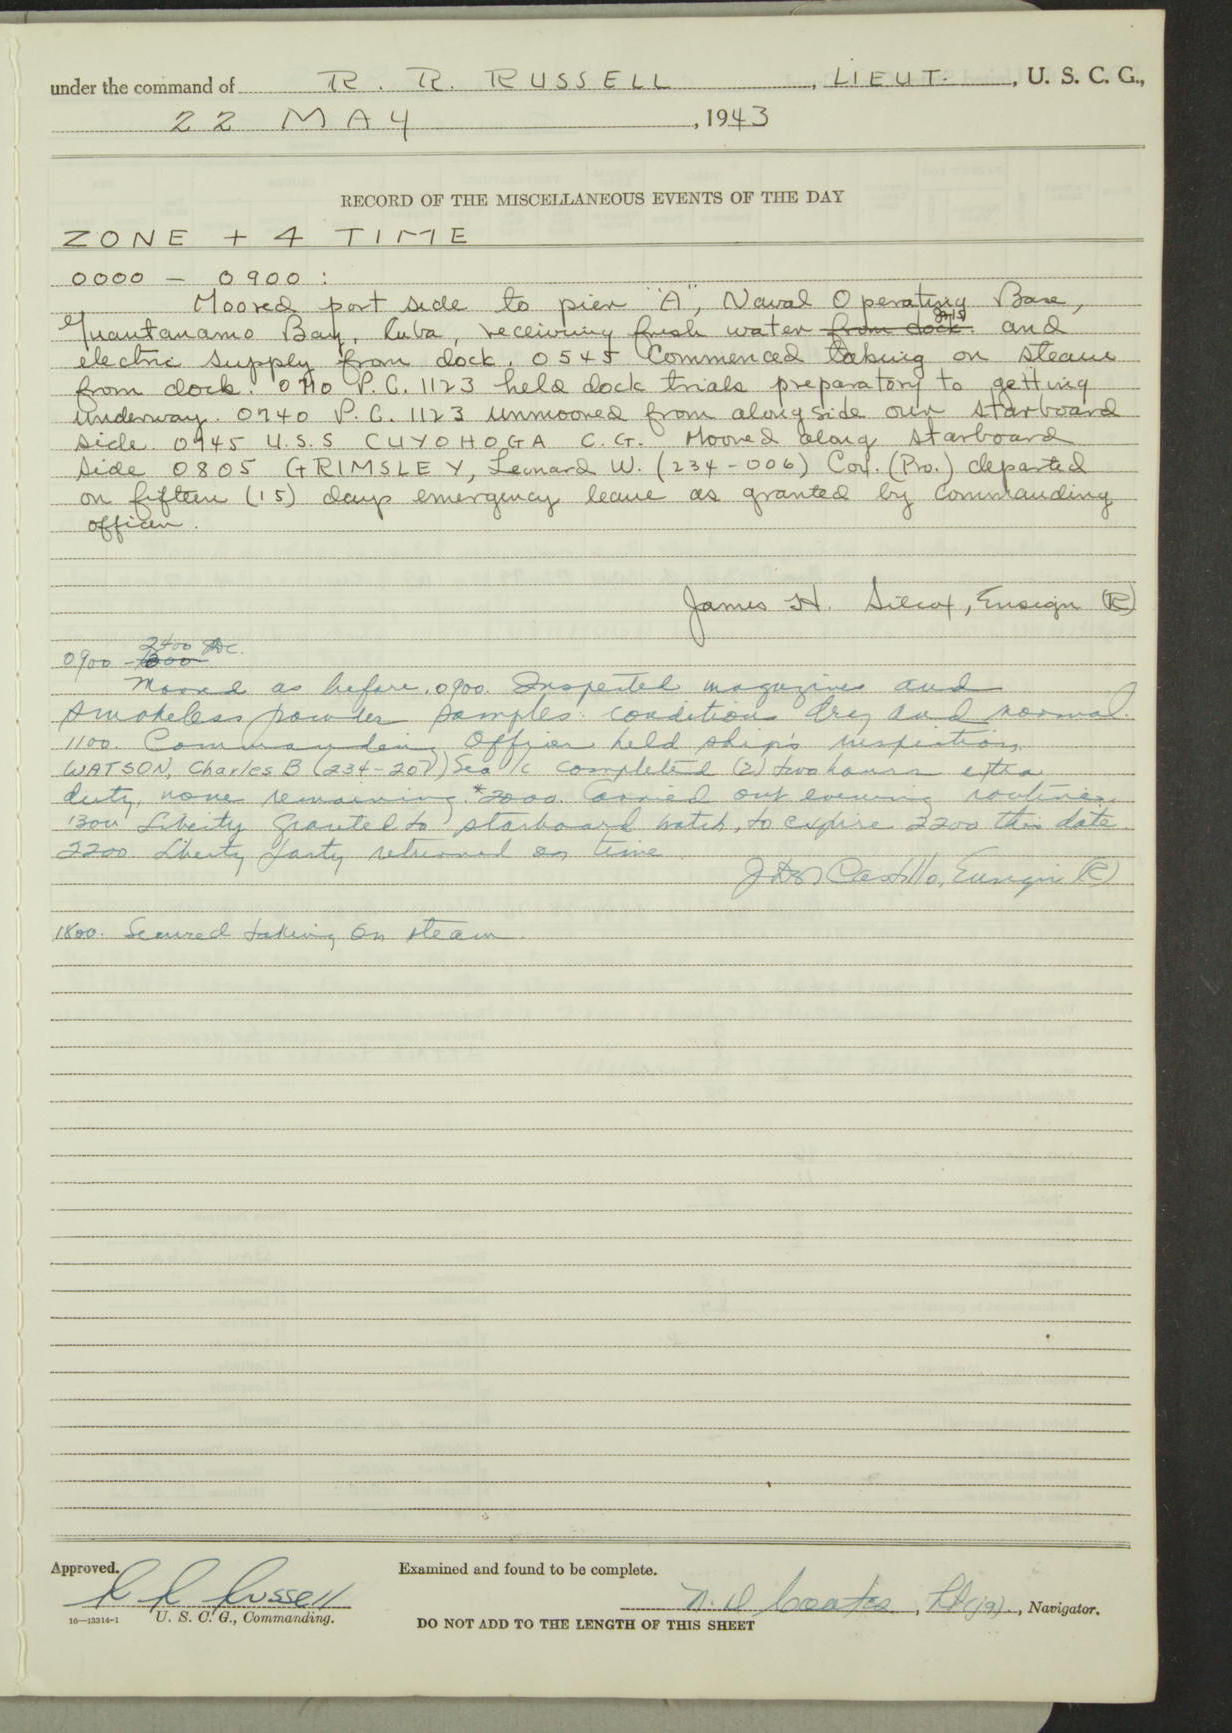 under the command of R. R. RUSSELL, LIEUT., U. S. C. G.,
22 MAY, 1943
RECORD OF THE MISCELLANEOUS EVENTS OF THE DAY
ZONE + 4 TIME
0000 - 0900 :
Moored port side to pier "A", Naval Operating Base,
Guantanamo Bay, Cuba, receiving fresh water from dock and
electric supply from dock. 0545 Commenced taking on steam
from dock. 0710 P.C. 1123 held dock trials preparatory to getting
underway. 0740 P.C. 1123 unmoored from alongside our starboard
side 0745 U.S.S CUYOHOGA C.G. Moored along starboard
side 0805 GRIMSLEY, Leonard W. (234-006) Cox. (Pro.) departed
on fifteen (15) days emergency leave as granted by Commanding
officer.
James H. Silcox, Ensign (R)
2400
0900 -
Moored as before. 0900. Inspected magazines and
smokeless powder samples: conditions dry and normal.
1100. Commanding Officer held ship's inspection.
WATSON, Charles B (234-207) Sea 1/c completed (2) two hours extra
duty, none remaining. *2000. Carried out evening routine.
1300 Liberty granted to starboard watch, to expire 2200 this date.
2200 Liberty party returned on time
Castillo, Ensign (R)
1800. Secured taking on steam.
Approved.
R R Russell
U. S. C. G., Commanding.
16—13314-1
Examined and found to be complete.
N. D Coates, Lt (jg)., Navigator.
DO NOT ADD TO THE LENGTH OF THIS SHEET